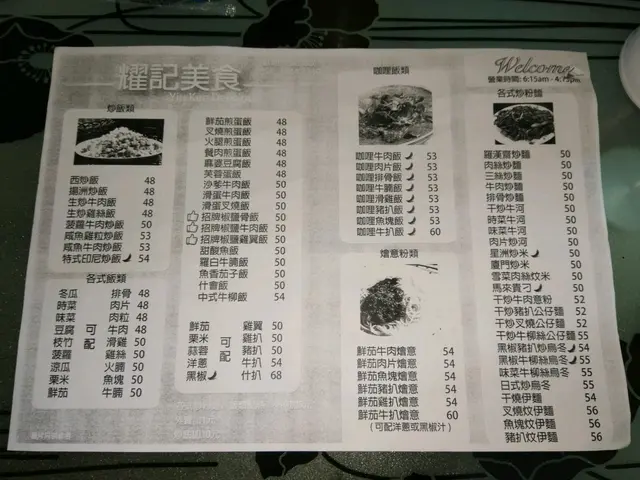 耀記美食
炒飯類
西炒飯 48
揚洲炒飯 48
生炒牛肉飯 48
生炒雞絲飯 48
菠蘿牛肉炒飯 50
咸魚雞粒炒飯 53
咸魚牛肉炒飯 53
特式印尼炒飯 54
各式飯類
冬瓜 排骨 48
時菜 肉片 48
味菜 肉粒 48
豆腐 可 牛肉 48
枝竹 配 滑雞 50
菠蘿 雞絲 50
涼瓜 火腩 50
栗米 魚塊 50
鮮茄 牛腩 50
鮮茄煎蛋飯 48
叉燒煎蛋飯 48
火腿煎蛋飯 48
餐肉煎蛋飯 48
麻婆豆腐飯 48
芙蓉蛋飯 48
沙爹牛肉飯 50
滑蛋牛肉飯 50
滑蛋叉燒飯 50
招牌椒鹽骨飯 50
招牌椒鹽牛肉飯 50
招牌椒鹽雞翼飯 50
甜酸魚飯 50
羅白牛腩飯 50
魚香茄子飯 50
什會飯 50
中式牛柳飯 54
鮮茄 雞翼 50
栗米 可 雞扒 50
蒜蓉 配 豬扒 50
洋蔥 牛扒 54
黑椒 什扒 68
咖喱飯類
咖喱牛肉飯 53
咖喱肉片飯 53
咖喱排骨飯 53
咖喱牛腩飯 53
咖喱滑雞飯 53
咖喱豬扒飯 53
咖喱魚塊飯 53
咖喱牛扒飯 60
燴意粉類
鮮茄牛肉燴意 54
鮮茄肉片燴意 54
鮮茄魚塊燴意 54
鮮茄豬扒燴意 54
鮮茄雞扒燴意 54
鮮茄牛扒燴意 60
(可配洋蔥或黑椒汁)
Welcome
營業時間: 6:15am - 4:75pm
各式炒粉麵
羅漢齋炒麵 50
肉絲炒麵 50
三絲炒麵 50
牛肉炒麵 50
排骨炒麵 50
干炒牛河 50
時菜牛河 50
味菜牛河 50
肉片炒河 50
星洲炒米 50
廈門炒米 50
雪菜肉絲炆米 50
馬來貴刁 50
干炒牛肉意粉 52
干炒豬扒公仔麵 52
干炒叉燒公仔麵 52
干炒牛柳公仔麵 55
黑椒豬扒炒烏冬 54
黑椒牛柳絲烏冬 55
味菜牛柳絲烏冬 55
日式炒烏冬 55
干燒伊麵 54
叉燒炆伊麵 56
魚塊炆伊麵 56
豬扒炆伊麵 56